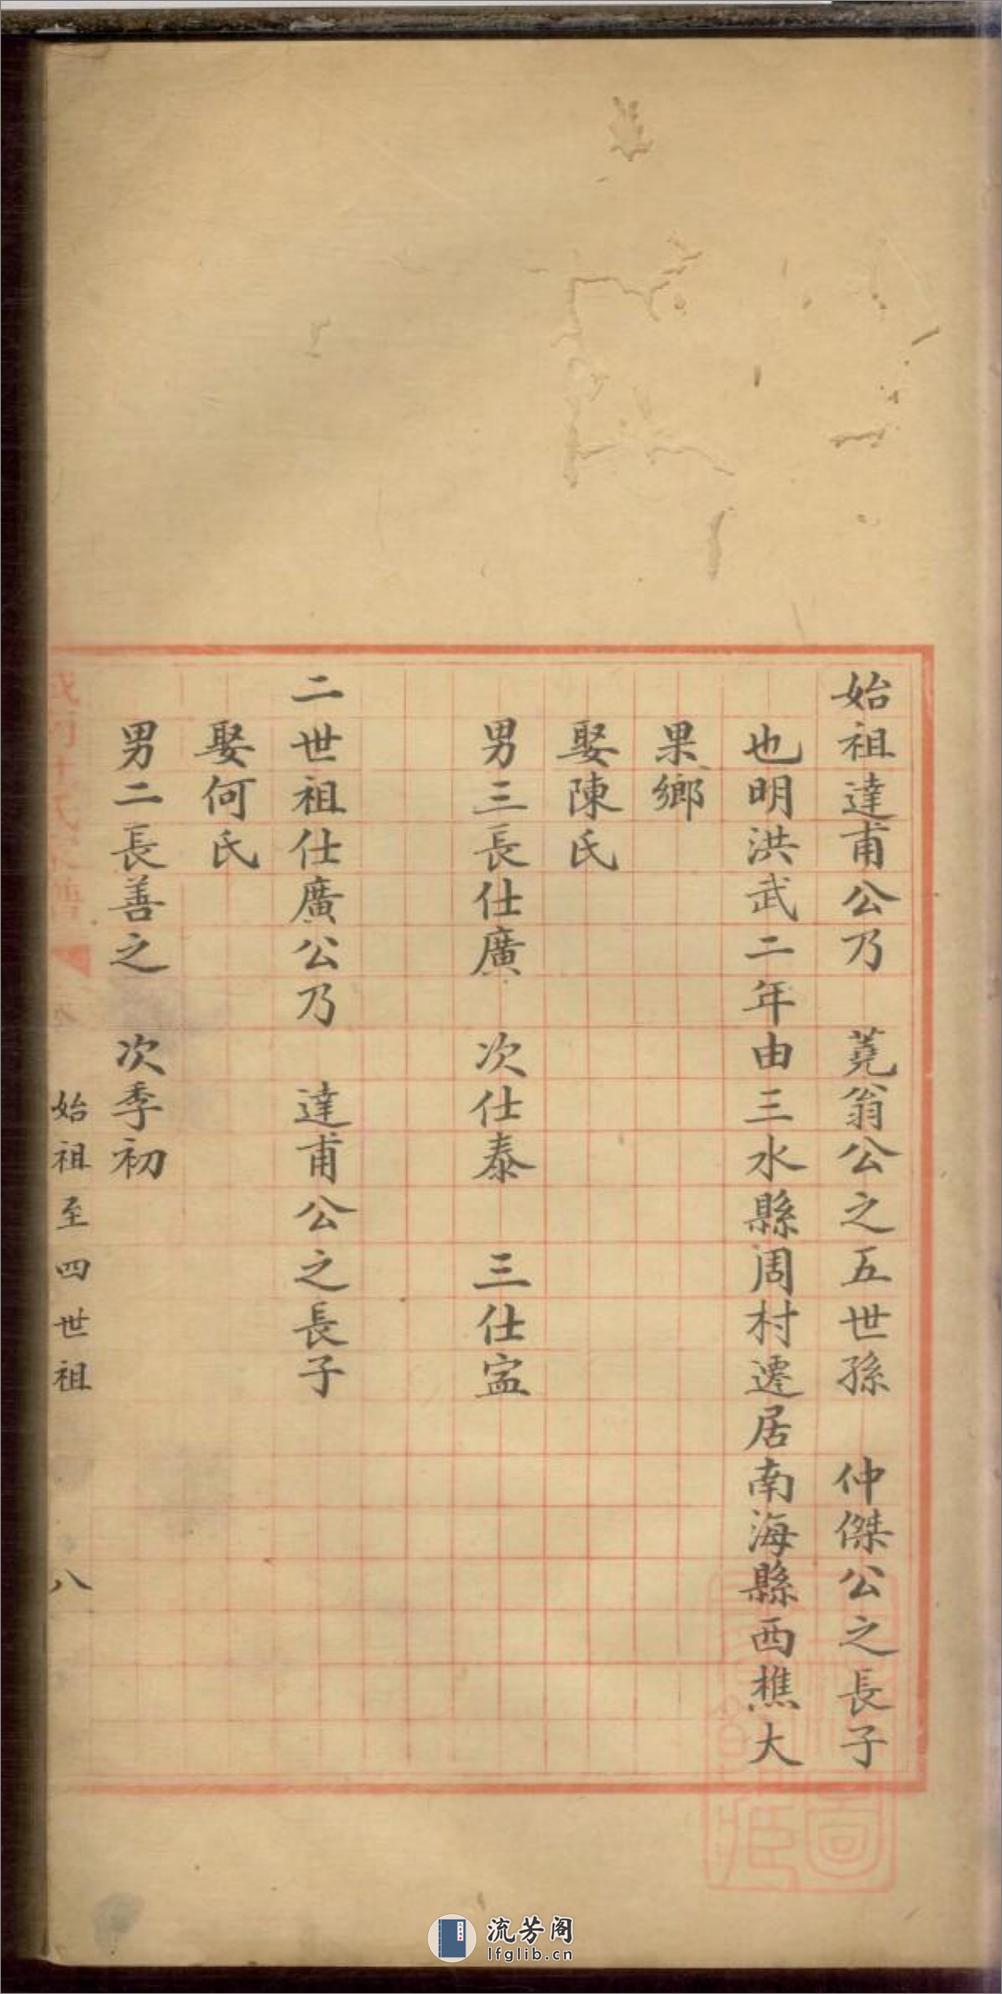 始祖達甫公乃　蕘翁公之五世孫　仲傑公之長子
也明洪武二年由三水縣周村遷居南海縣西樵大
果鄉
娶陳氏
男三長仕廣　次仕泰　三仕寍
二世祖仕廣公乃　達甫公之長子
娶何氏
男二長善之　次季初
始祖至四世祖　八
流芳阁
lfglib.cn